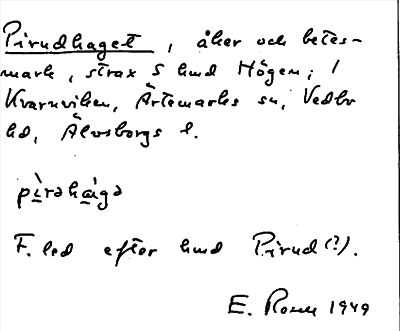 Pirudhaget, åker och betes-
mark, strax S hmd Högen; i
Kvarnviken, Ärtemarks sn, Vedbo
hd, Älvsborgs l.
pìrəhá̱gə
F. led efter hmd Pirud(?).
E. 1949